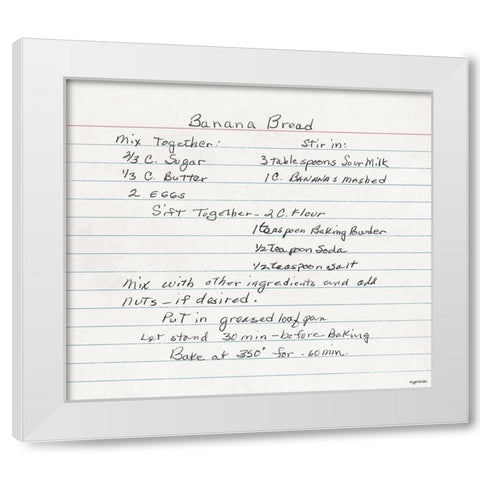 Banana Bread
Mix Together: Stir in:
2/3 C. Sugar 3 tablespoons Sour Milk
1/3 C. Butter 1 C. BANANAS mashed
2 EGGS
Sift Together - 2 C. Flour
1 teaspoon Baking Powder
1/2 teaspoon Soda
1/2 teaspoon salt
Mix with other ingredients and add
nuts - if desired.
PuT in greased loaf pan
Let stand 30 min - before Baking
Bake at 350° for 60 min.